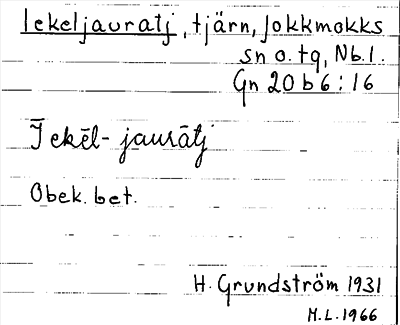 Iekeljauratj, tjärn, Jokkmokks
sn o. tg, Nb.l.
Gn 20 b 6 : 16
Īekēl- jaurātj
Obek. bet.
H. Grundström 1931
H.L. 1966